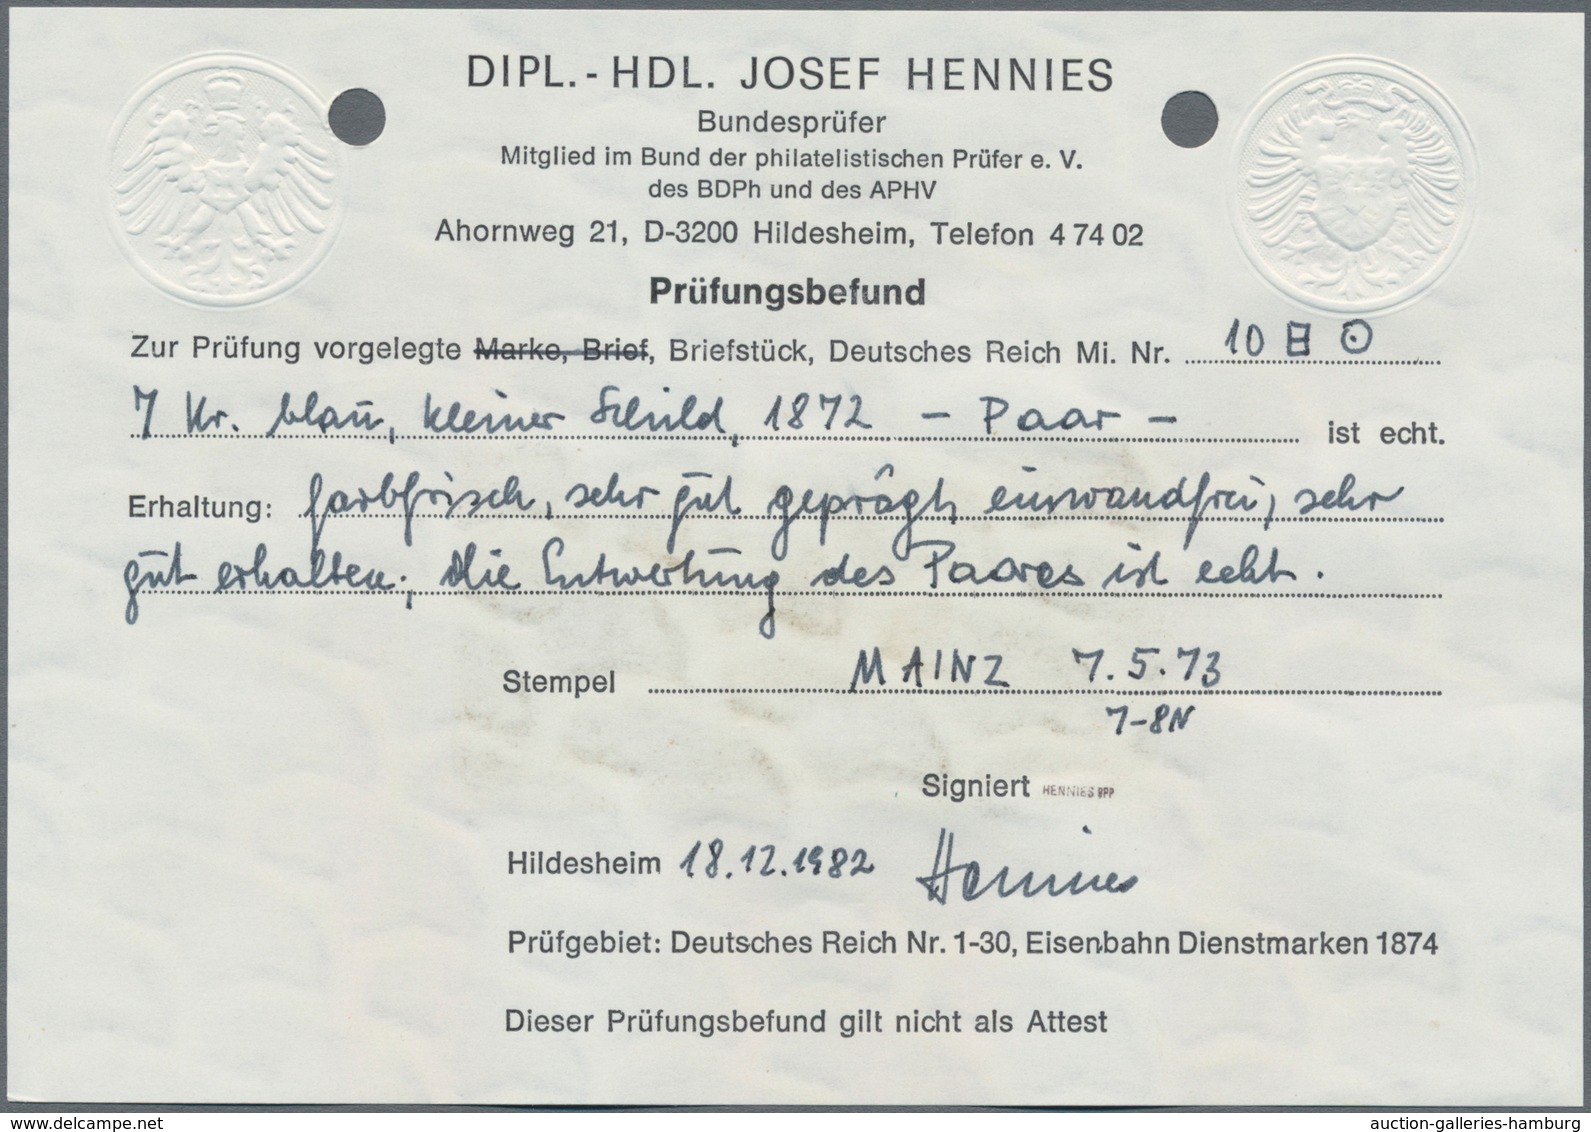 DIPL.-HDL. JOSEF HENNIES
Bundesprüfer
Mitglied im Bund der philatelistischen Prüfer e. V.
des BDPh und des APHV
Ahornweg 21, D-3200 Hildesheim, Telefon 4 74 02
Prüfungsbefund
Zur Prüfung vorgelegte Marke, Brief, Briefstück, Deutsches Reich Mi. Nr. 10
7 Kr. blau, kleiner Schild, 1872 - Paar - ist echt.
Erhaltung: farbfrisch, sehr gut geprägt, einwandfrei, sehr
gut erhalten; die Entwertung des Paares ist echt.
Stempel MAINZ 7.5.73
7-8N
Signiert HENNIES BPP
Hildesheim 18.12.1982 Hennies
Prüfgebiet: Deutsches Reich Nr. 1-30, Eisenbahn Dienstmarken 1874
Dieser Prüfungsbefund gilt nicht als Attest
www.delcampe.net
auction-galleries-hamburg